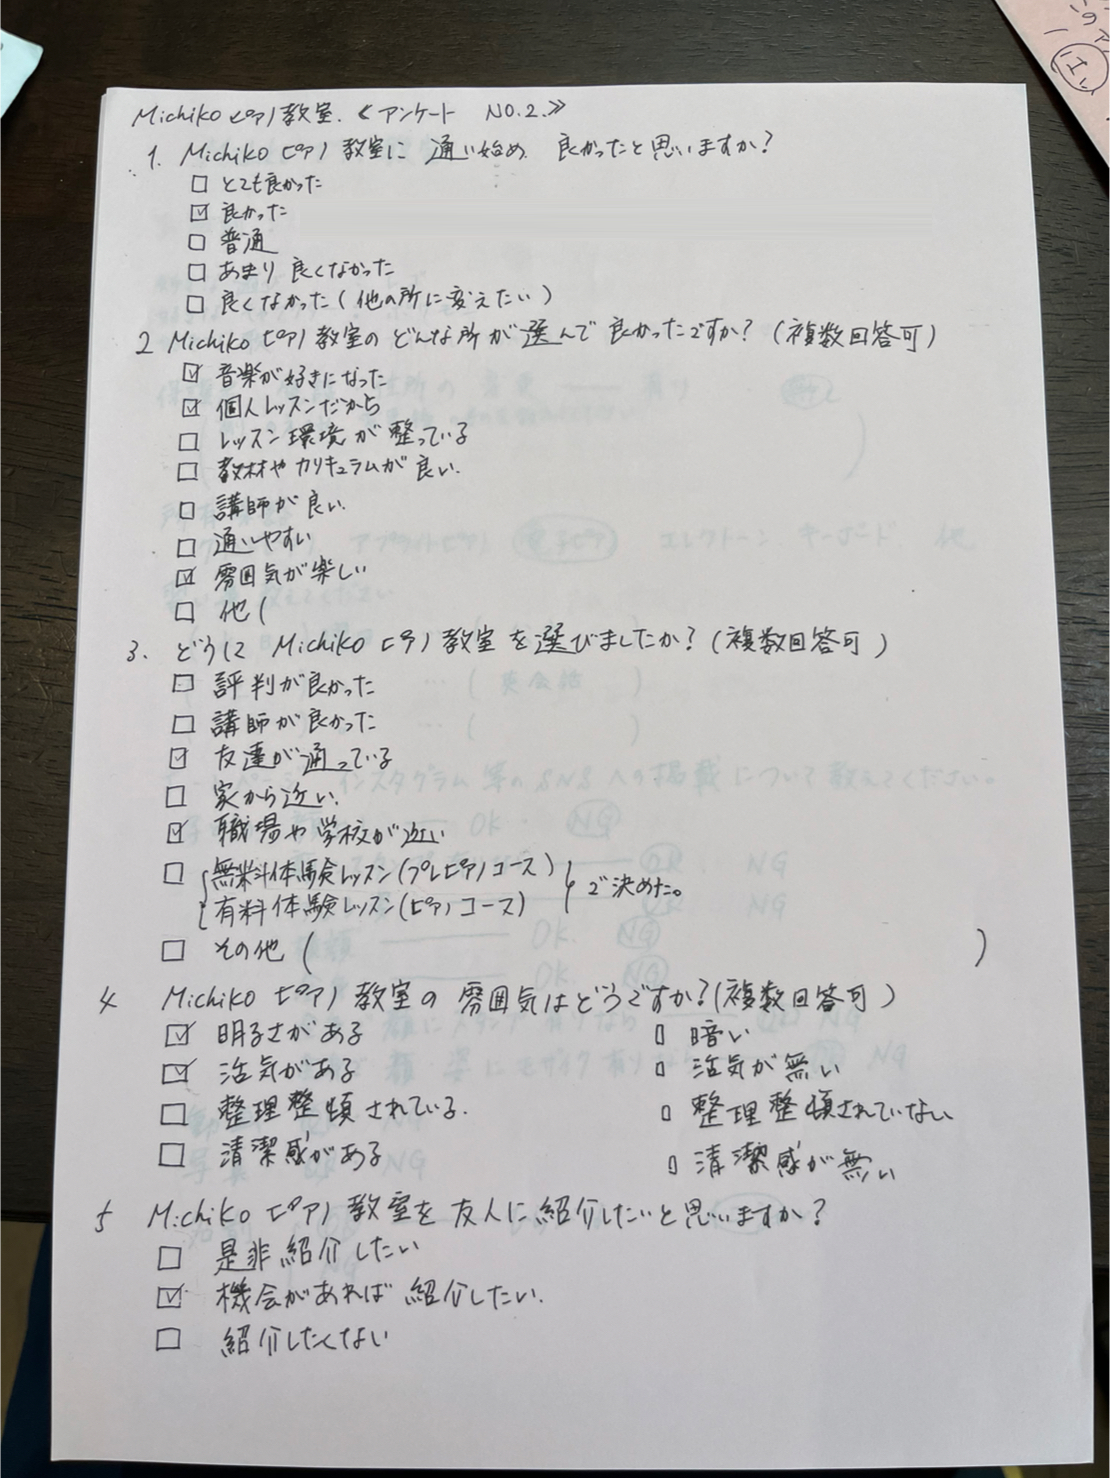 Michikoピアノ教室.《アンケート NO.2.》
1. Michiko ピアノ 教室に 通い始め 良かったと思いますか?
□ とても良かった
☑ 良かった
□ 普通
□ あまり 良くなかった
□ 良くなかった(他の所に変えたい)
2 Michiko ピアノ教室の どんな所が選んで 良かったですか?(複数回答可)
☑ 音楽が好きになった
☑ 個人レッスンだから
□ レッスン環境が整っている
□ 教材やカリキュラムが良い.
□ 講師が良い.
□ 通いやすい
☑ 雰囲気が楽しい
□ 他(
3. どうして Michiko ピアノ教室を選びましたか?(複数回答可)
□ 評判が良かった
□ 講師が良かった
☑ 友達が通っている
□ 家から近い.
☑ 職場や学校が近い
□ 無料体験レッスン(プレピアノコース)
有料体験レッスン(ピアノコース) で決めた。
□ その他( )
4 Michiko ピアノ教室の雰囲気はどうですか?(複数回答可)
☑ 明るさがある □ 暗い
☑ 活気がある □ 活気が無い
□ 整理整頓されている. □ 整理整頓されていない
□ 清潔感がある □ 清潔感が無い
5 Michiko ピアノ教室を友人に紹介したいと思いますか?
□ 是非紹介したい
☑ 機会があれば 紹介したい.
□ 紹介したくない
このア
はい